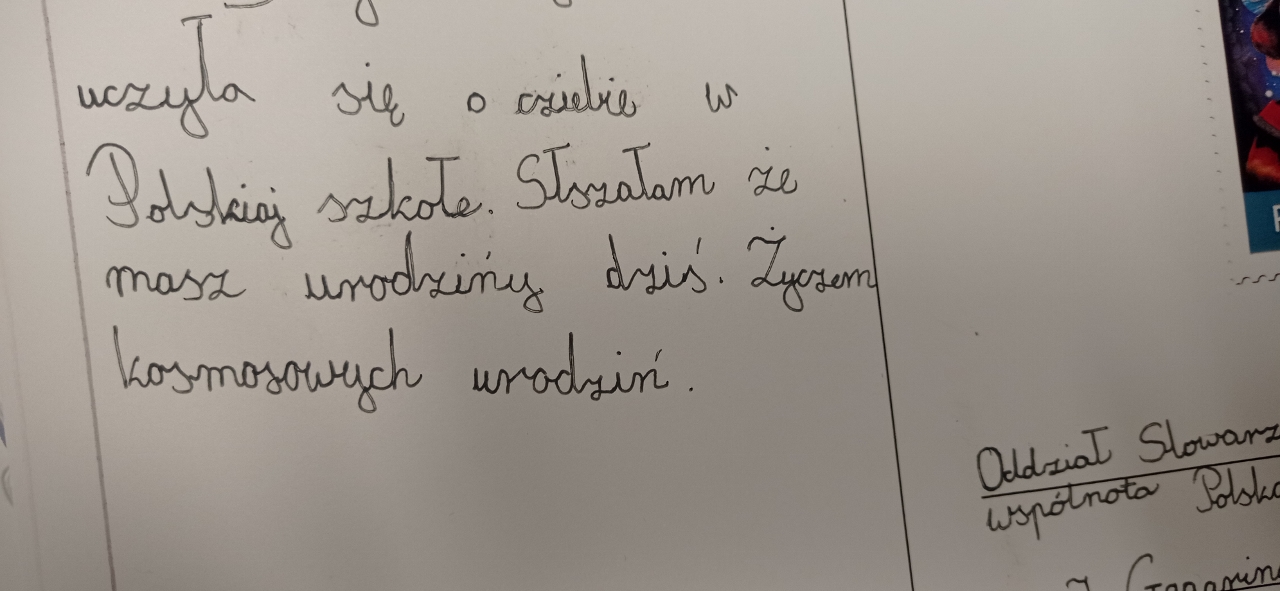 uczyła się o cziebie w
Polskiaj szkołe. Słszałam że
masz urodzińy dziś. Życzem
kosmosowych urodziń.
Oddział Stowarz
wspólnota Polska